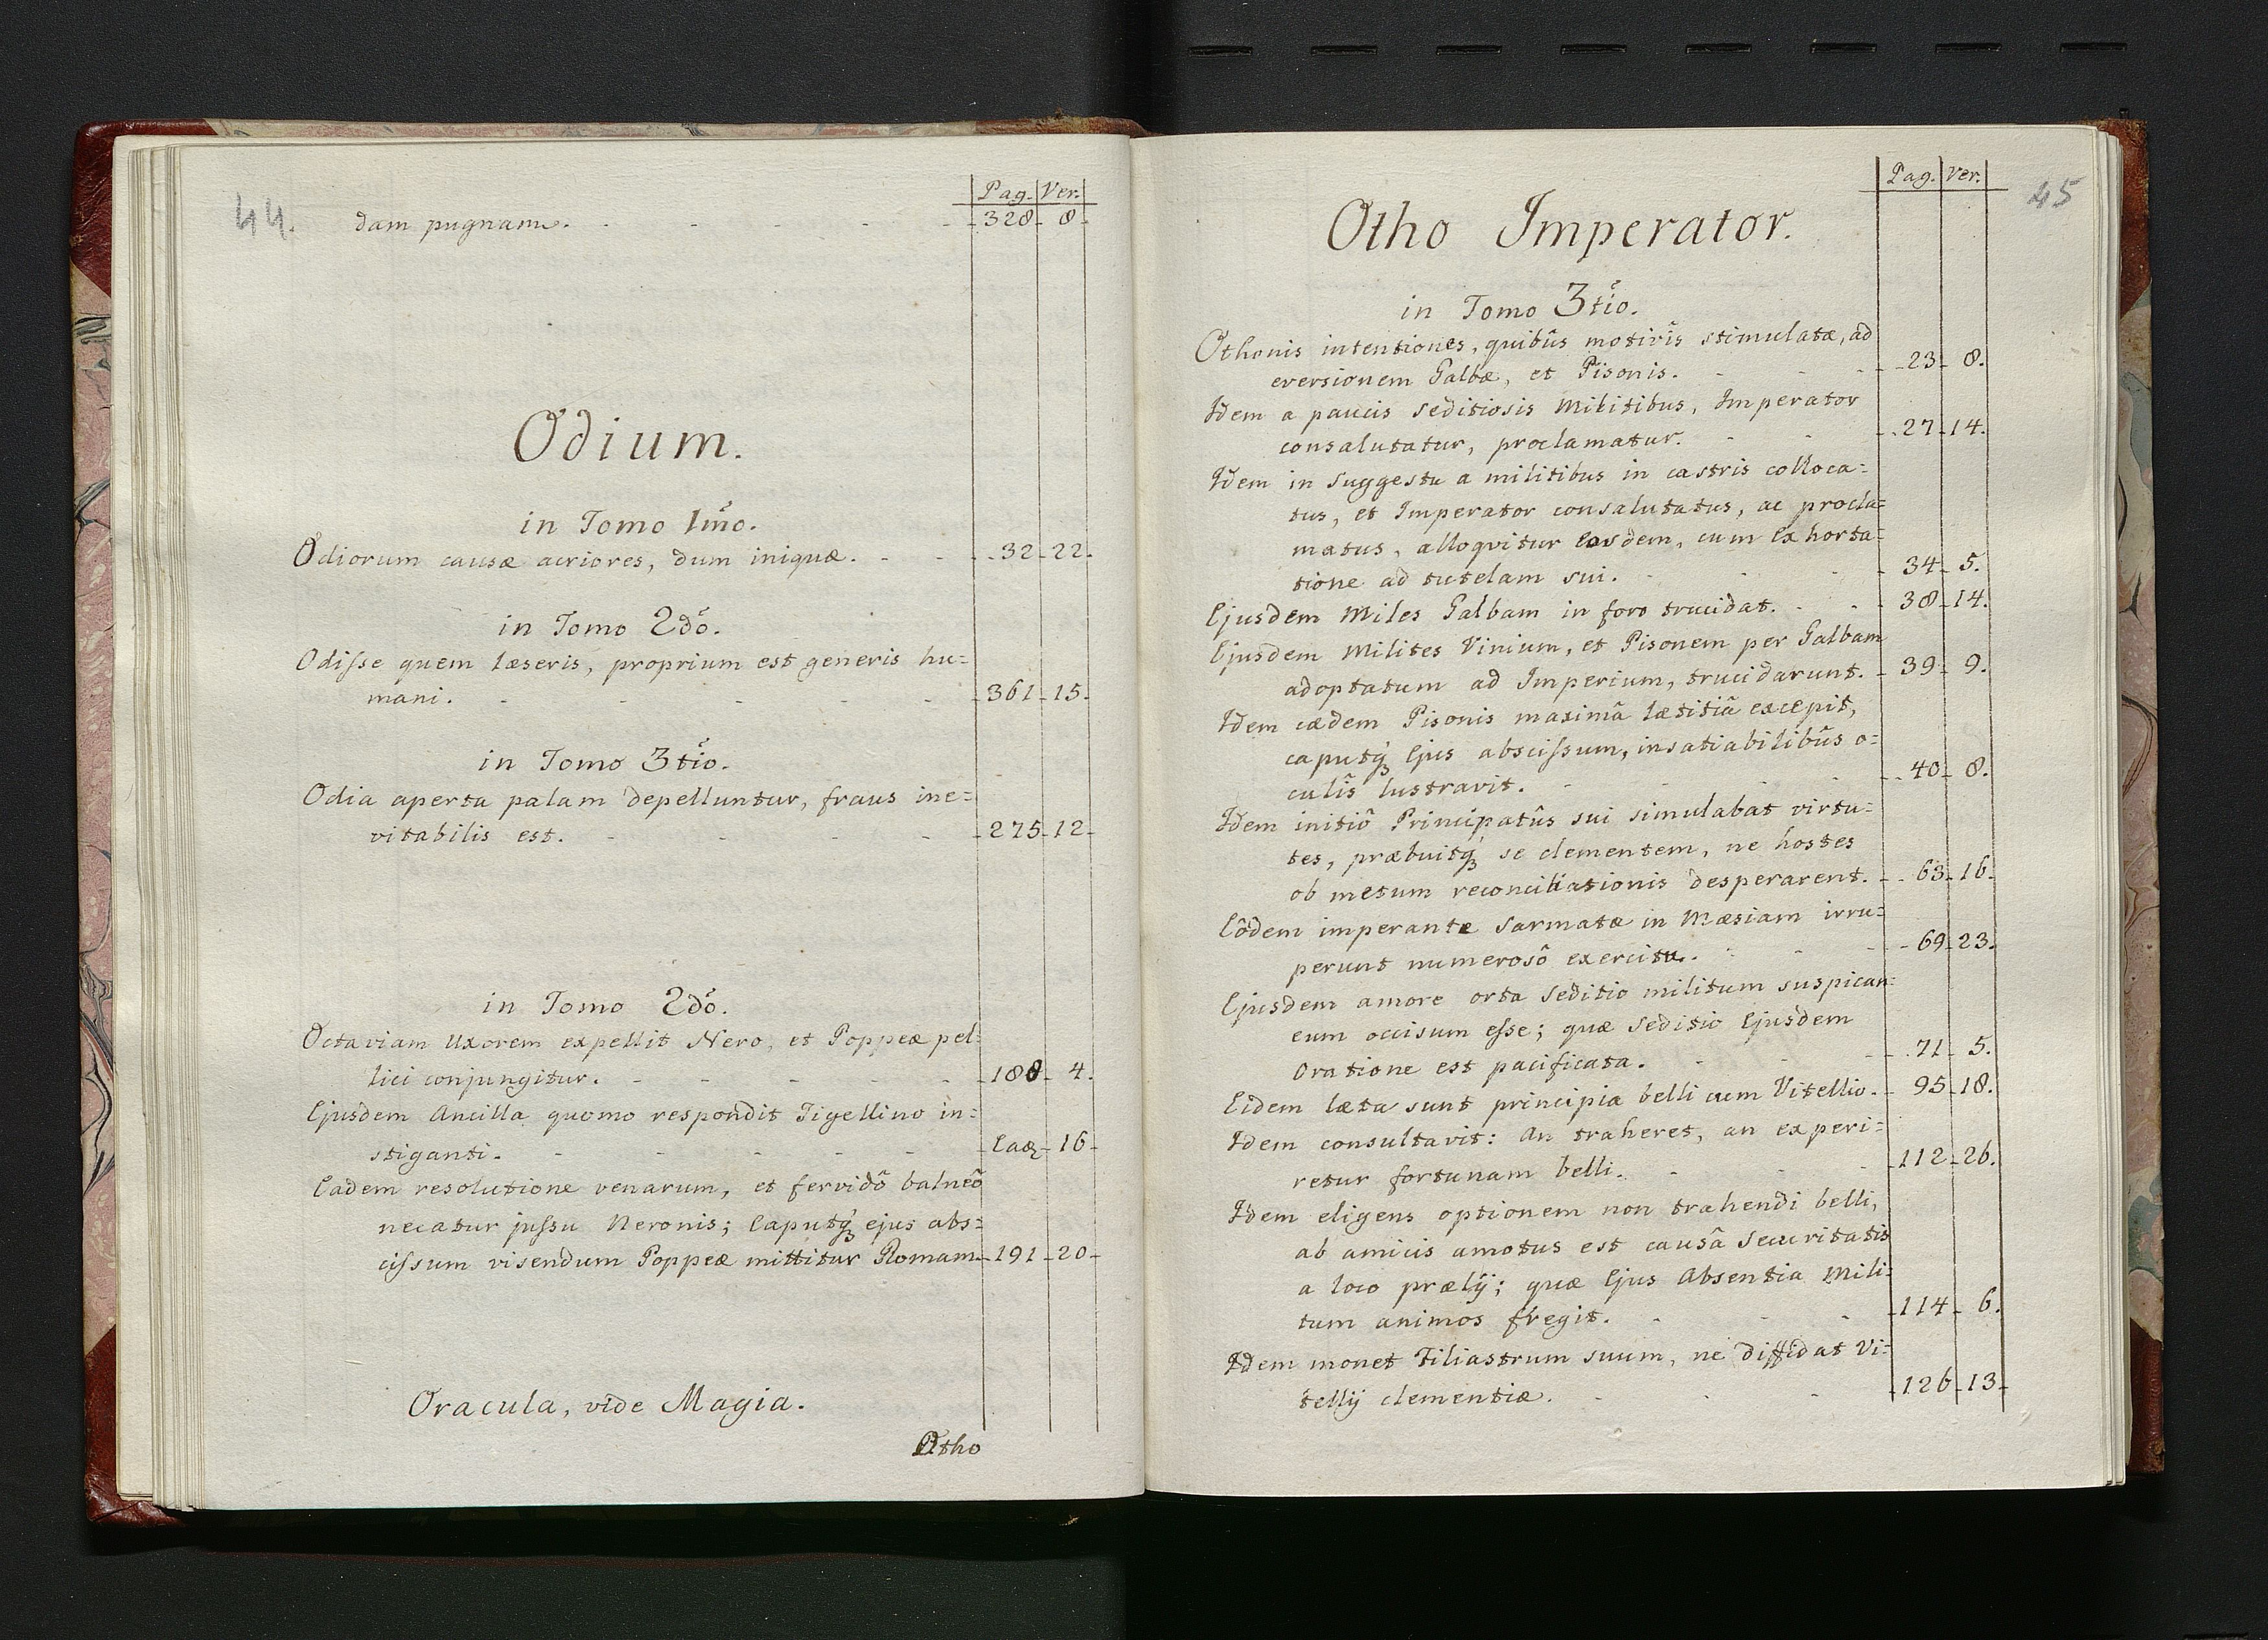 44.
Pag. Ver.
dam pugnam. - 328 - 8 -
Odium.
in Tomo 1mo.
Odiorum causæ acriores, dum iniquæ. - - 32 - 22.
in Tomo 2dó.
Odisse quem læseris, proprium est generis hu=
mani. - - - - - 361 - 15.
in Tomo 3tió.
Odia aperta palam depelluntur, fraus ine=
vitabilis est. - - - - 275 - 12 -
in Tomo 2dó.
Octaviam Uxorem expellit Nero, et Poppeæ pel=
lici conjungitur. - - - - - 188 - 4.
Ejusdem Ancilla quomo respondit Tigellino in=
stiganti. - - - - - Eaɋ - 16 -
Eadem resolutione venarum, et fervidô balneô
necatur jussu Neronis; Caputq́ꝫ ejus abs=
cissum visendum Poppeæ mittitur Romam - 191 - 20 -
Oracula, vide Magia.
Otho
45
Pag. Ver.
Otho Imperator.
in Tomo 3tió.
Othonis intentiones, quibûs motivîs stimulatæ, ad
eversionem Galbæ, et Pisonis. - - - 23 - 8.
Idem a paucis seditiosis Militibus, Imperator
consalutatur, proclamatur. - - - 27 - 14.
Idem in suggestu a militibus in castris colloca=
tus, et Imperator consalutatus, ac procla=
matus, alloqvitur Eosdem, cum Exhorta=
tione ad tutelam sui. - - - 34 - 5.
Ejusdem Miles Galbam in foro trucidat. - - 38 - 14.
Ejusdem Milites Vinium, et Pisonem per Galbam
adoptatum ad Imperium, trucidarunt. - 39 - 9.
Idem cædem Pisonis maximâ lætitiâ excepit,
caputq́ꝫ Ejus abscissum, insatiabilibûs o=
culîs lustravit. - - - - 40 - 8.
Idem initiô Principatûs sui simulabat virtu=
tes, præbuitq́ꝫ se clementem, ne hostes
ob metum reconciliationis desperarent. - 63 - 16.
Eôdem imperante Sarmatæ in Mæsiam irru=
perunt numerosô exercitu. - - - 69 - 23.
Ejusdem amore orta seditio militum suspican=
eum occisum esse; quæ seditio Ejusdem
Oratione est pacificata. - - - 71 - 5.
Eidem læta sunt principia belli cum Vitellio. - 95 - 18.
Idem consultavit: An traheret, an experi=
retur fortunam belli. - - - 112 - 26.
Idem eligens optionem non trahendi belli,
ab amicis amotus est causâ Securitatis
a loco prælij; quæ Ejus Absentia Mili=
tum animos fregit. - - - 114 - 6.
Idem monet Filiastrum suum, ne diffidat Vi=
tellij clementiæ. - - - 126 - 13 -